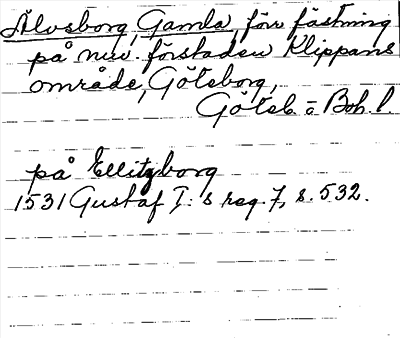 Älvsborg, Gamla, förr fästning
på nuv. förstaden Klippans
område, Göteborg,
Göteb. o Boh. l.
på Ellitzborg
1531 Gustaf I: s reg. 7, s. 532.